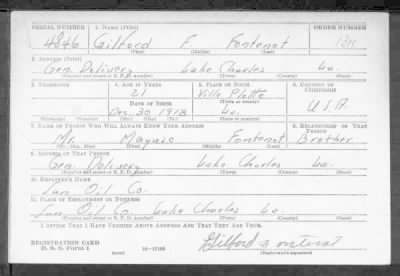 SERIAL NUMBER 1. NAME (Print) ORDER NUMBER
4846 Gilford F. Fontenot
(First) (Middle) (Last)
2. ADDRESS (Print)
Gen. Delivery Lake Charles La.
(Number and street or R. F. D. number) (Town) (County) (State)
3. TELEPHONE 4. AGE IN YEARS 5. PLACE OF BIRTH 6. COUNTRY OF CITIZENSHIP
21 Ville Platte
DATE OF BIRTH (Town or county)
Dec. 30, 1918 La. U.S.A.
(Exchange) (No.) (Mo.) (Day) (Yr.) (State or country)
7. NAME OF PERSON WHO WILL ALWAYS KNOW YOUR ADDRESS 8. RELATIONSHIP OF THAT PERSON
Mr. Fontenot Brother
(Mr., Mrs., Miss) (First) (Middle) (Last)
9. ADDRESS OF THAT PERSON
Gen. Delivery Lake Charles La.
(Number and street or R. F. D. number) (Town) (County) (State)
10. EMPLOYER'S NAME
Sun Oil Co.
11. PLACE OF EMPLOYMENT OR BUSINESS
Sun Oil Co. Lake Charles La.
(Number and street or R. F. D. number) (Town) (County) (State)
I AFFIRM THAT I HAVE VERIFIED ABOVE ANSWERS AND THAT THEY ARE TRUE.
REGISTRATION CARD
D. S. S. Form 1 (over) 16—17105 Gilford Fontenot
(Registrant's signature)